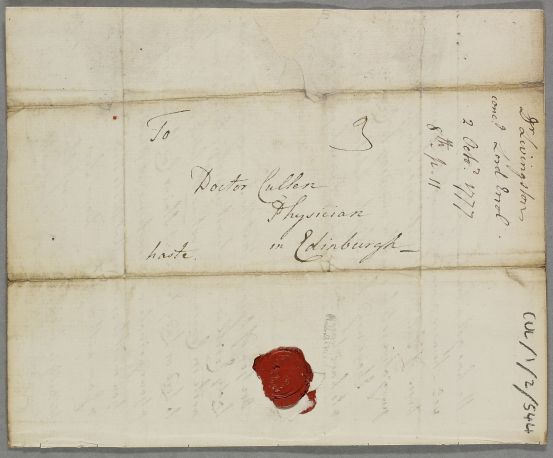 To
3
Doctor Cullen
Physician
in Edinburgh
haste.
Dr Livingston
conc.d Lord Erol.
2 Octo.r 1777
CUL/1/2/544